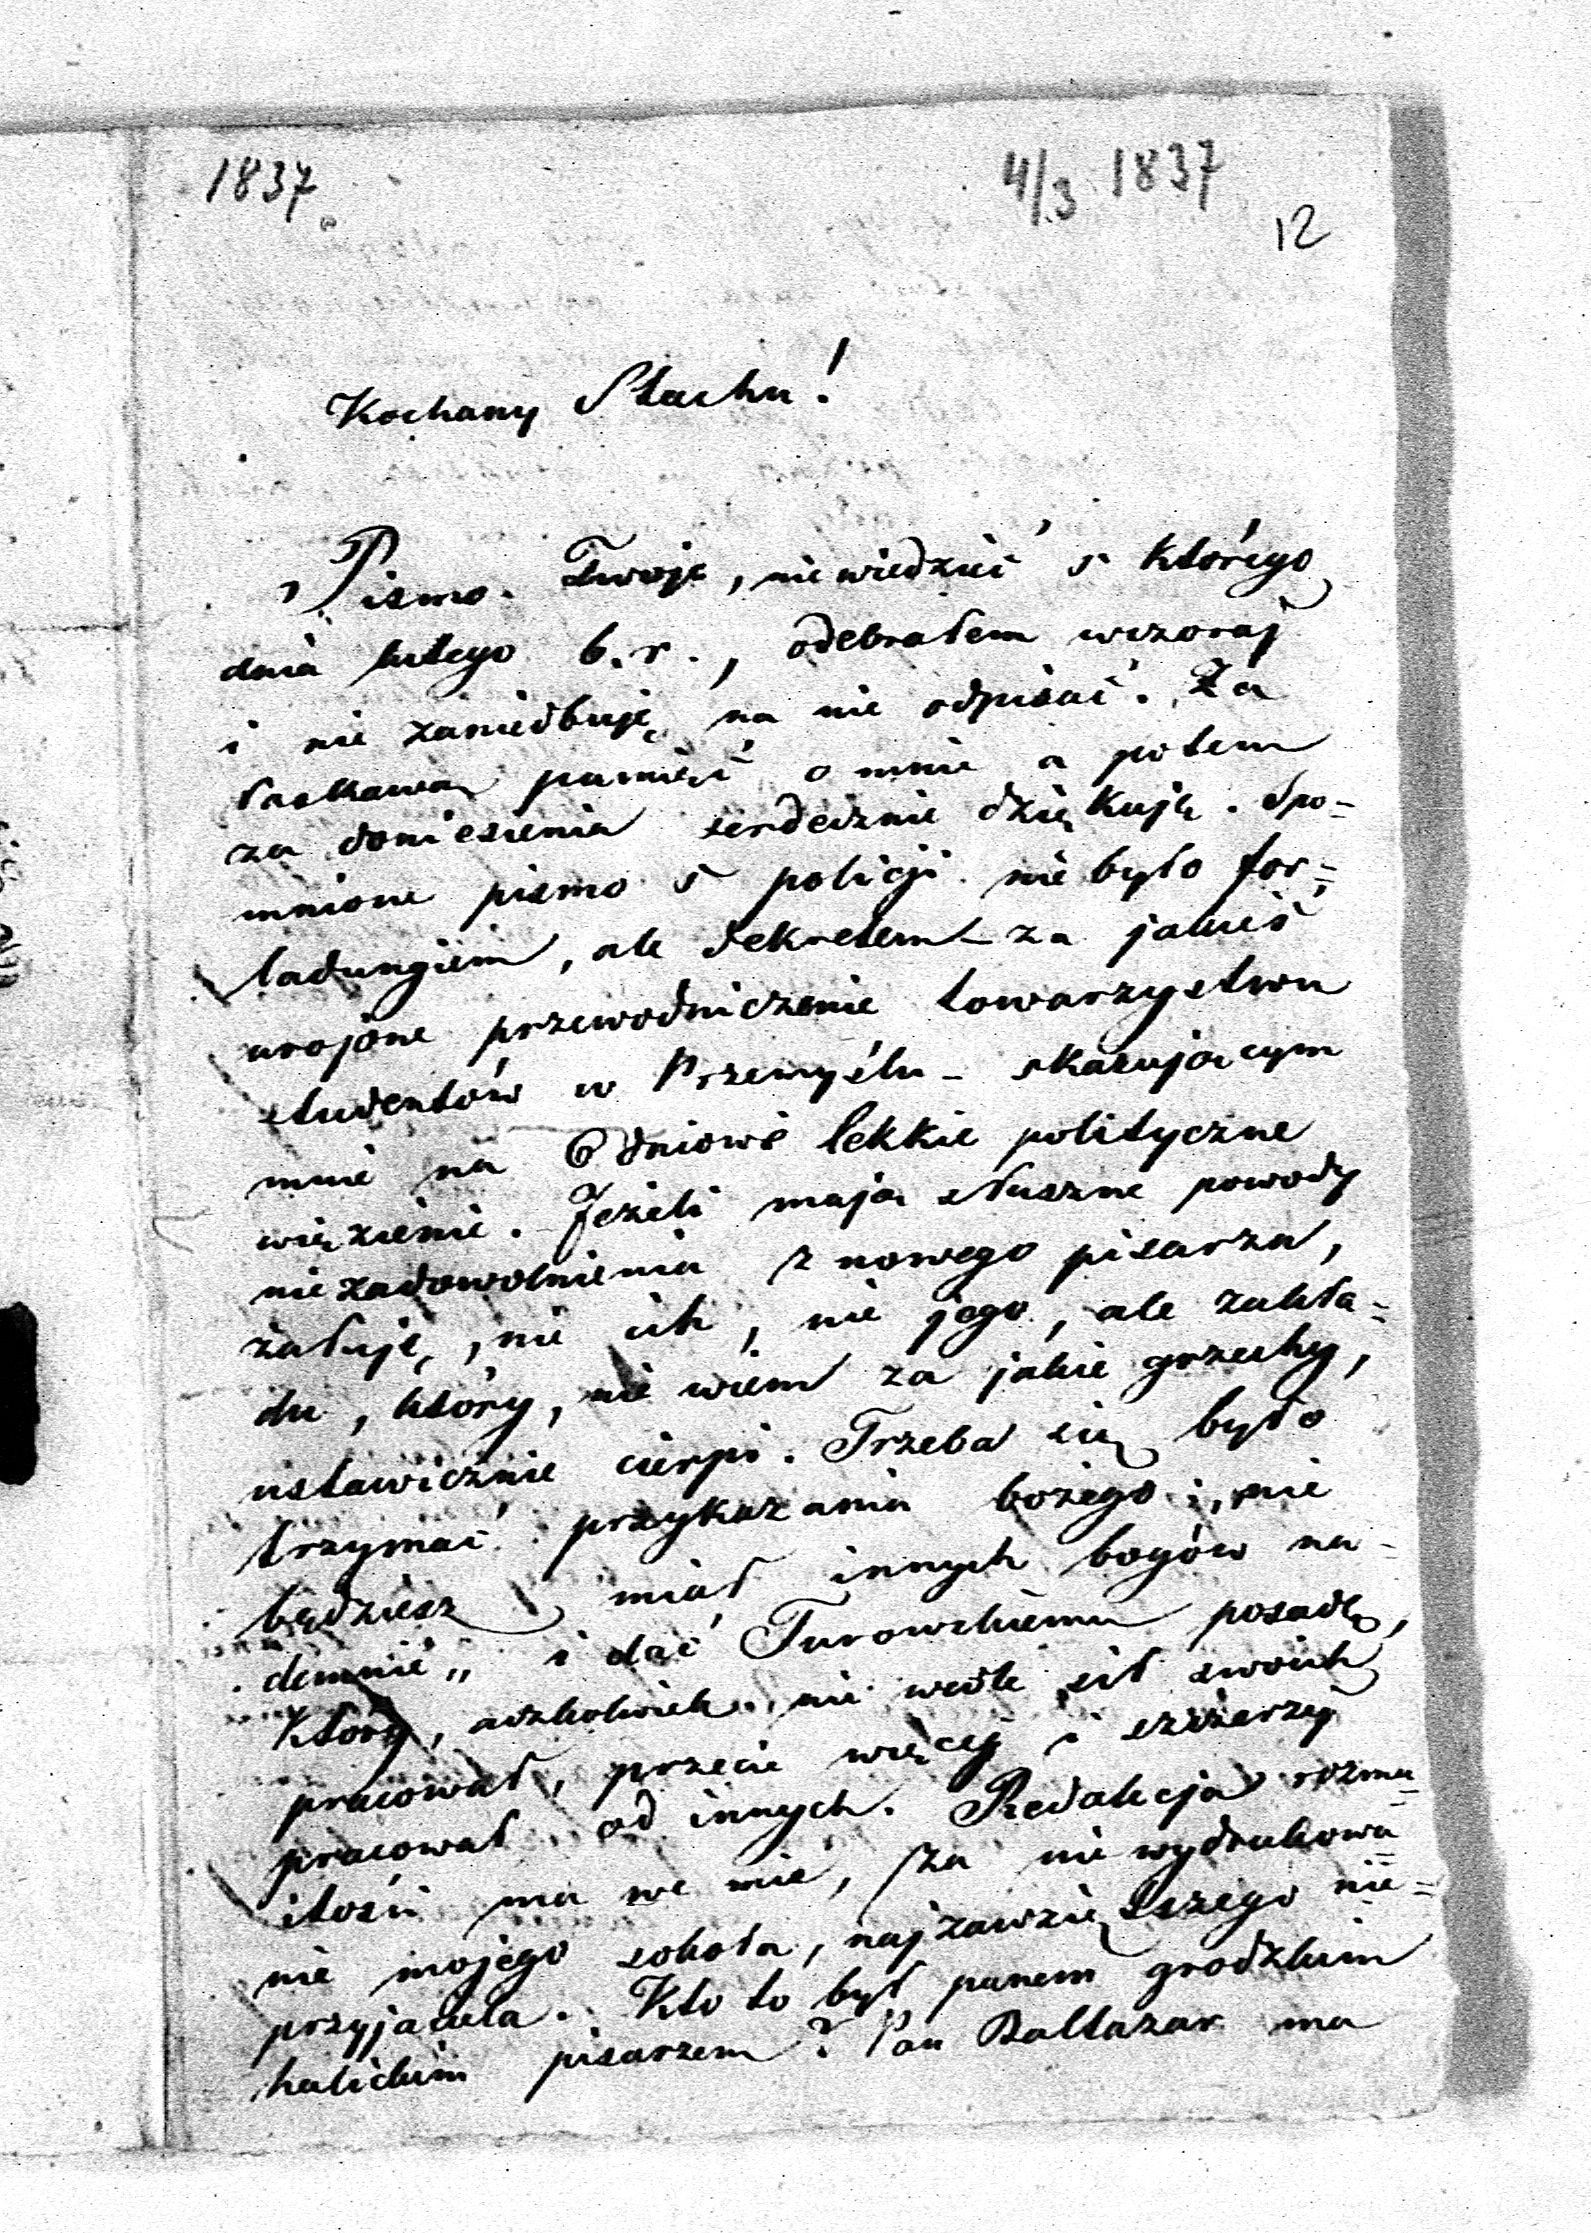 1837
4/3 1837
12
Kochany Stachu!
Pismo Twoje, niewiedzieć s którego
dnia lutego b. r., odebrałem wczoraj
i nie zaniedbuję na nie odpisać. Za
łaskawą pamięć o mnie a potem
za doniesienia serdecznie dziękuję. Spo-
mnione pismo s policji nie było for-
ladungiem, ale dekretem za jakieś
urojone przewodniczenie towarzystwu
studentów w Przemyślu - skazującym
mnie na 6 dniowe lekkie polityczne
więzienie. Jeżeli mają słuszne powody
niezadowolnienia z nowego pisarza,
żałuję, nie ich, nie jego, ale zakła-
du, który, nie wiem za jakie grzechy,
ustawicznie cierpi. Trzeba się było
trzymać przykazania bożego: „nie
będziesz miał innych bogów na-
demnie„ i dać Turowskiemu posadę,
który, aczkolwiek nie wedle sił swoich
pracował, przecie więcej i szczerzej
pracował od innych. Redakcja rozma-
itości ma we mnie, za nie wydrukowa-
nie mojego sokoła, najzawziętszego nie-
przyjaciela. Kto to był panem grodzkim
halickim pisarzem? Pan Baltazar ma